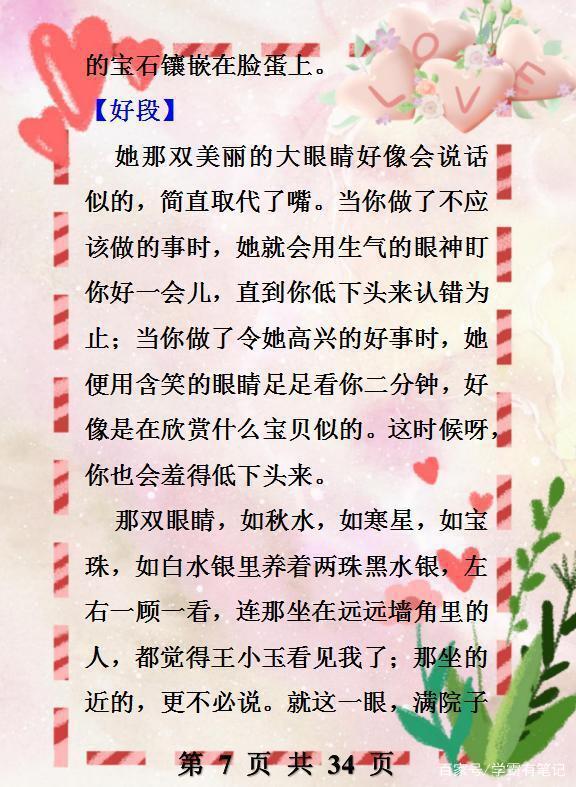 LOVE
的宝石镶嵌在脸蛋上。
【好段】
她那双美丽的大眼睛好像会说话
似的，简直取代了嘴。当你做了不应
该做的事时，她就会用生气的眼神盯
你好一会儿，直到你低下头来认错为
止；当你做了令她高兴的好事时，她
便用含笑的眼睛足足看你二分钟，好
像是在欣赏什么宝贝似的。这时候呀，
你也会羞得低下头来。
那双眼睛，如秋水，如寒星，如宝
珠，如白水银里养着两珠黑水银，左
右一顾一看，连那坐在远远墙角里的
人，都觉得王小玉看见我了；那坐的
近的，更不必说。就这一眼，满院子
第 7 页 共 34 页
百家号/学霸有笔记